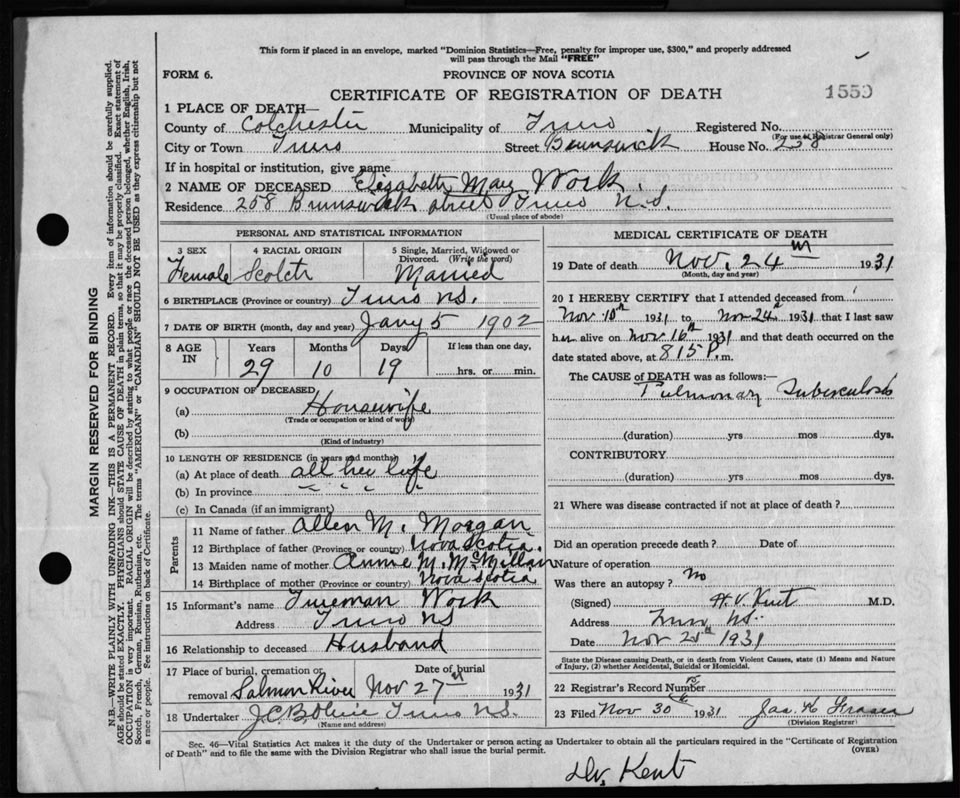 This form if placed in an envelope, marked "Dominion Statistics—Free, penalty for improper use, $300," and properly addressed
will pass through the Mail "FREE"
FORM 6.
PROVINCE OF NOVA SCOTIA
CERTIFICATE OF REGISTRATION OF DEATH
1559
1 PLACE OF DEATH—
County of Colchester Municipality of Truro Registered No.
(For use of Registrar General only)
City or Town Truro Street Brunswick House No. 258
If in hospital or institution, give name
2 NAME OF DECEASED Elizabeth May Work.
Residence 258 Brunswick Street Truro N.S.
(Usual place of abode)
PERSONAL AND STATISTICAL INFORMATION
3 SEX 4 RACIAL ORIGIN 5 Single, Married, Widowed or Divorced. (Write the word)
Female Scotch Married
6 BIRTHPLACE (Province or country) Truro N.S.
7 DATE OF BIRTH (month, day and year) Jany 5 1902
8 AGE IN Years Months Days If less than one day,
29 10 19 hrs. or min.
9 OCCUPATION OF DECEASED
(a) Housewife
(Trade or occupation or kind of work)
(b)
(Kind of industry)
10 LENGTH OF RESIDENCE (in years and months)
(a) At place of death all her life
(b) In province " " "
(c) In Canada (if an immigrant)
Parents
11 Name of father Allen M. Morgan
12 Birthplace of father (Province or country) Nova Scotia.
13 Maiden name of mother Annie M. McMillan
14 Birthplace of mother (Province or country) Nova Scotia
15 Informant's name Work
Address Truro NS
16 Relationship to deceased Husband
17 Place of burial, cremation or removal Salmon River Date of burial Nov 27 1931
18 Undertaker Truro N.S.
(Name and address)
MEDICAL CERTIFICATE OF DEATH
19 Date of death Nov. 24th 1931
(Month, day and year)
20 I HEREBY CERTIFY that I attended deceased from
Nov 10th 1931 to Nov 24th 1931 that I last saw
her alive on Nov 16th 1931 and that death occurred on the
date stated above, at 8 15 P. m.
The CAUSE of DEATH was as follows:—
Pulmonary Tuberculosis
(duration) yrs mos dys.
CONTRIBUTORY
(duration) yrs mos dys.
21 Where was disease contracted if not at place of death?
Did an operation precede death? Date of
Nature of operation
Was there an autopsy? No
(Signed) H.V. Kent M.D.
Address Truro NS.
Date Nov 1931
State the Disease causing Death, or in death from Violent Causes, state (1) Means and Nature
of Injury, (2) whether Accidental, Suicidal or Homicidal.
22 Registrar's Record Number
23 Filed Nov 30 1931 Jas. H Fraser
(Division Registrar)
Sec. 46—Vital Statistics Act makes it the duty of the Undertaker or person acting as Undertaker to obtain all the particulars required in the "Certificate of Registration
of Death" and to file the same with the Division Registrar who shall issue the burial permit.
(OVER)
Dr. Kent
MARGIN RESERVED FOR BINDING
N.B.—WRITE PLAINLY WITH UNFADING INK—THIS IS A PERMANENT RECORD. Every item of information should be carefully supplied.
AGE should be stated EXACTLY. PHYSICIANS should STATE CAUSE OF DEATH in plain terms, so that it may be properly classified. Exact statement of
OCCUPATION is very important. RACIAL ORIGIN will be described by stating to what people or race the deceased person belonged, whether English, Irish,
Scotch, French, German, Russian, Ruthenian, etc. The terms "AMERICAN" or "CANADIAN" SHOULD NOT BE USED as they express citizenship but not
a race or people. See instructions on back of Certificate.